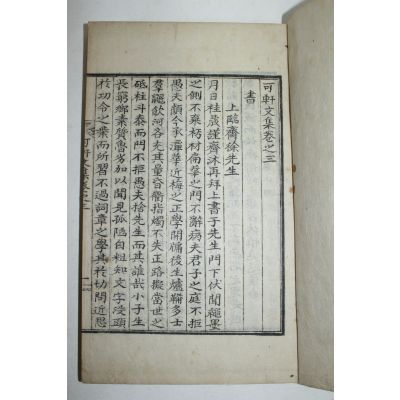 可軒文集卷之三
書
上臨齋徐先生
月日桂晟謹齋沐再拜上書于先生門下伏聞繩墨
之側不棄朽材倫華之門不辭病夫君子之庭不拒
愚夫顧今承濂華近梅之正學開牖後生爐鞴多士
羣飮河各充其量盲衢指燭不失正路擬當世之
砥柱斗泰而門不拒愚夫捨先生而其誰哉小子生
長窮鄕素質魯劣加以聞見孤陋自粗知文字浸頭
於功令之業而所習不過詞章之學其於切問近思
可軒文集卷之三
一